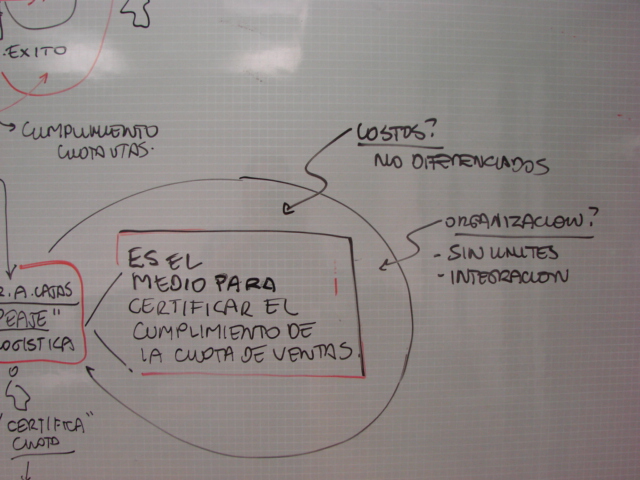 .EXITO
CUMPLIMIENTO
CUOTA VTAS.
COSTOS?
NO DIFERENCIADOS
ORGANIZACION?
- SIN LIMITES
- INTEGRACION
ES EL
MEDIO PARA
CERTIFICAR EL
CUMPLIMIENTO DE
LA CUOTA DE VENTAS.
R.A. CAJAS
PEAJE"
LOGISTICA
O
"CERTIFICA"
CUOTA